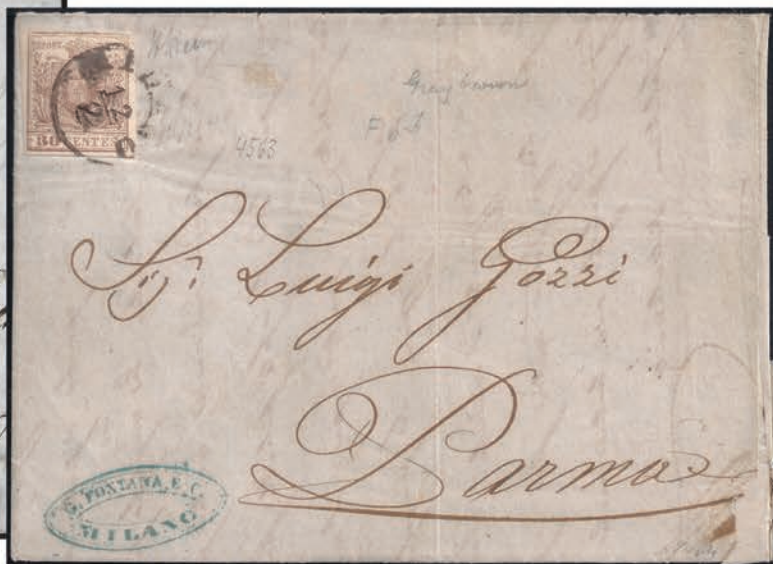 30 CENTES
MILANO
12
2
4563
Gray brown
Sig.r Luigi Gozzi
Parma
G. FONTANA E. C.
MILANO